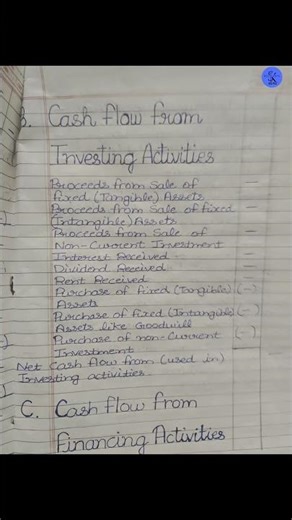 B. Cash flow from
Investing Activities
Proceeds from Sale of
fixed (Tangible) Assets —
Proceeds from Sale of fixed —
(Intangible) Assets
Proceeds from Sale of
Non-Current Investment —
Interest Received —
Dividend Received —
Rent Received —
Purchase of fixed (Tangible) (-)
Assets
Purchase of fixed (Intangible) (-)
Assets like Goodwill
Purchase of non-current (-)
Investment
Net Cash flow from (used in)
Investing activities.
C. Cash flow from
Financing Activities